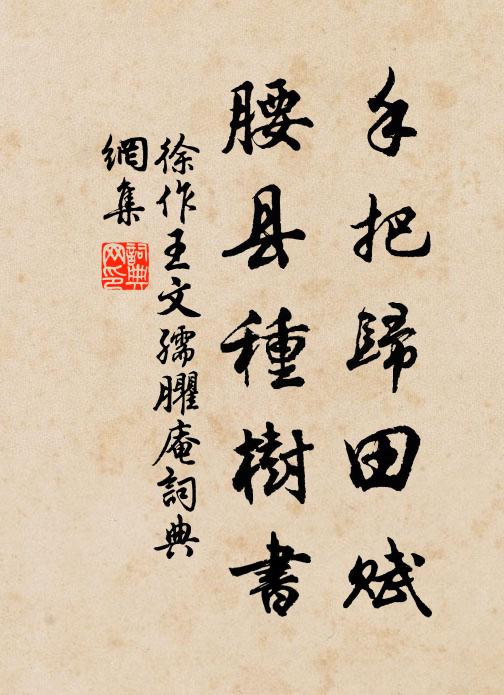 手把歸田赋
腰县種樹書
徐作王文孺臞庵詞典
網集
詞典網印